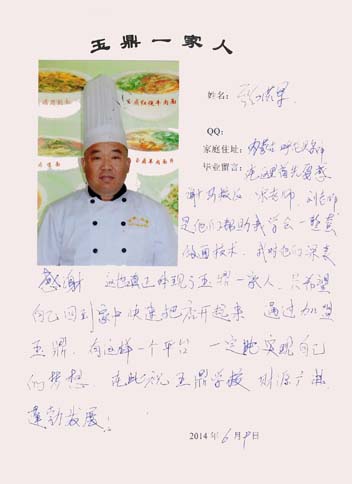 玉鼎一家人
姓名：
QQ：
家庭住址：内蒙古
毕业留言：在这里首先要感
谢 校长 宋老师 刘老师
是他们帮助我学会一整套
做面技术，我对他们深表
感谢 这也真正体现了玉鼎一家人，只希望
自己回到家中快速把店开起来 通过加盟
玉鼎，向这样一个平台 一定能实现自己
的梦想 在此祝玉鼎学校 财源广进
蓬勃发展！
2014年6月9日